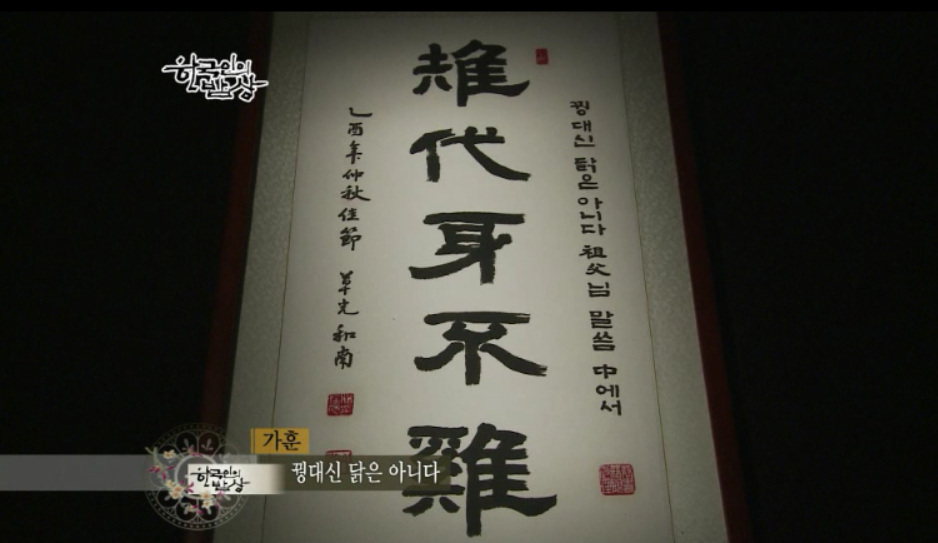 한국인의
밥상
꿩대신 닭은 아니다 祖父님 말씀 中에서
雉代身不雞
乙酉年仲秋佳節 草光和南
가훈
꿩대신 닭은 아니다
한국인의
밥상